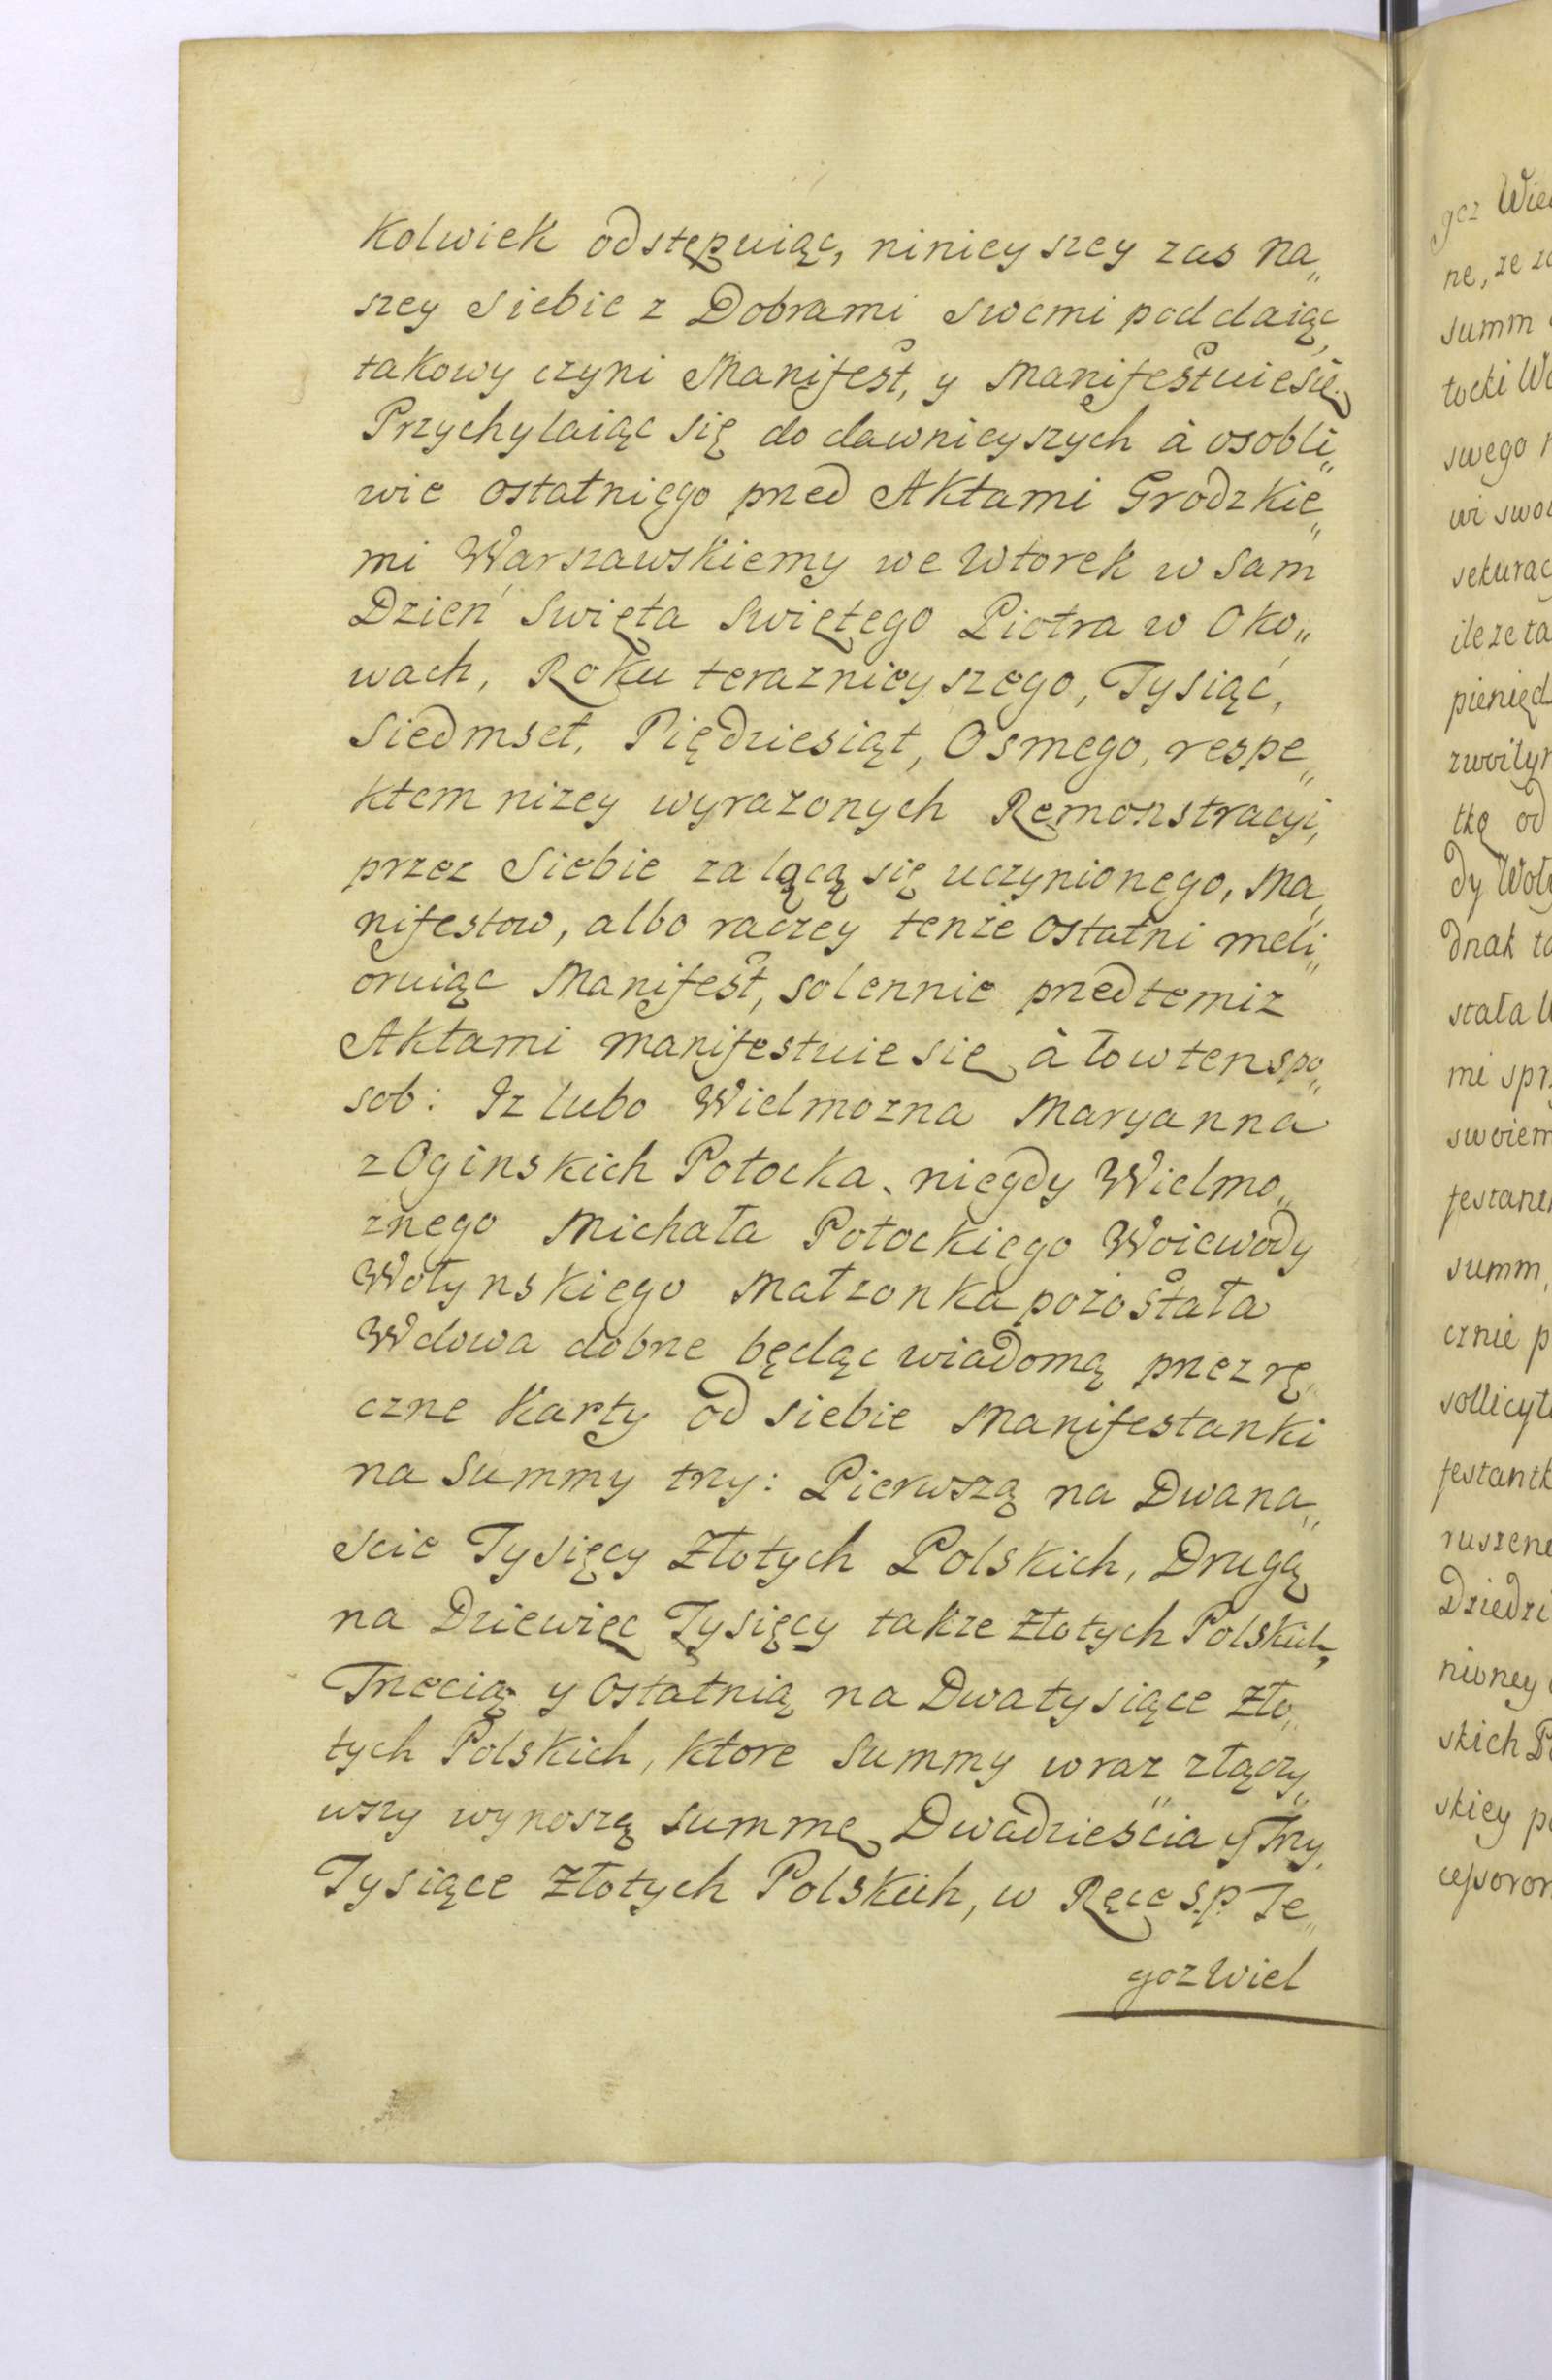 Kolwiek odstępuiąc, ninieyszey zas na„
szey Siebie z Dobrami swemi poddaiąc,
takowy czyni Manifest, y Manifestuie się.
Przychylaiąc się do dawnieyszych à osobli„
wie ostatniego przed Aktami Grodzkie„
mi Warszawskiemy we Wtorek w sam
Dzień Swięta Swiętego Piotra w Oko„
wach, Roku teraznieyszego, Tysiąć,
Siedmset, Piędziesiąt, Osmego, respe„
ktem nizey wyrazonych Remonstracyi,
przez Siebie zalącą się uczynionego, Ma„
nifestow, albo raczey tenże ostatni meli„
oruiąc Manifest, solennie przed temiz
Aktami manifestuie się à to w ten spo„
sob: Iz lubo Wielmozna Maryanna
z Oginskich Potocka, niegdy Wielmo„
znego Michała Potockiego Woiewody
Wołynskiego Małzonka pozostała
Wdowa dobrze będąc wiadomą przez rę„
czne Karty od siebie Manifestanki
na Summy trzy: Pierwszą na Dwana„
scie Tysięcy Złotych Polskich, Drugą
na Dziewięc Tysięcy takze Złotych Polskich,
Trzecią y Ostatnią na Dwa tysiące Zło„
tych Polskich, ktore Summy wraz złączy„
wszy wynoszą summę Dwadzieścia y Trzy
Tysiące Złotych Polskich, w Ręce s.p. Te„
goz Wiel
gcz
ne, ze
summ
tocki
swego
wi
ile ze ta
pienięd
tkę od
dnak
stała
mi
swoiem
summ,
cznie p
skich
skiey